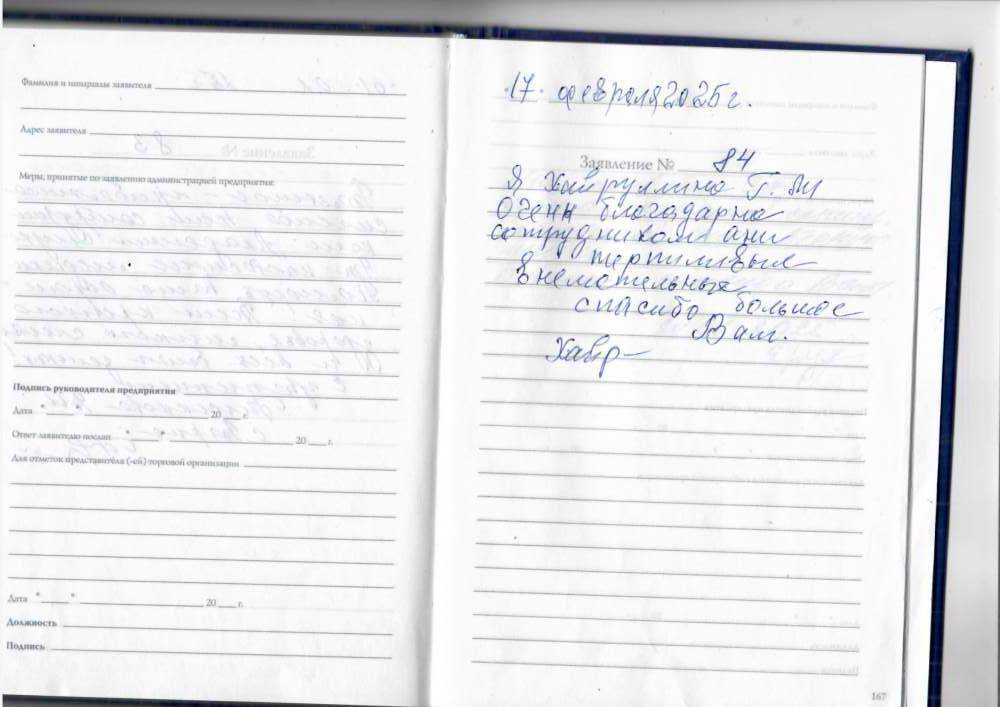 Фамилия и инициалы заявителя
Адрес заявителя
Меры, принятые по заявлению администрацией предприятия:
Подпись руководителя предприятия
Дата " " 20 г.
Ответ заявителю послан " " 20 г.
Для отметок представителя (-ей) торговой организации
Дата " " 20 г.
Должность
Подпись
17 февраля 2025 г.
Заявление № 84
Я Хайруллина Г. М
Очень благодарна
сотрудником ани
терпиливые
внемательные
спасибо большое
Вам.
Хайр
167